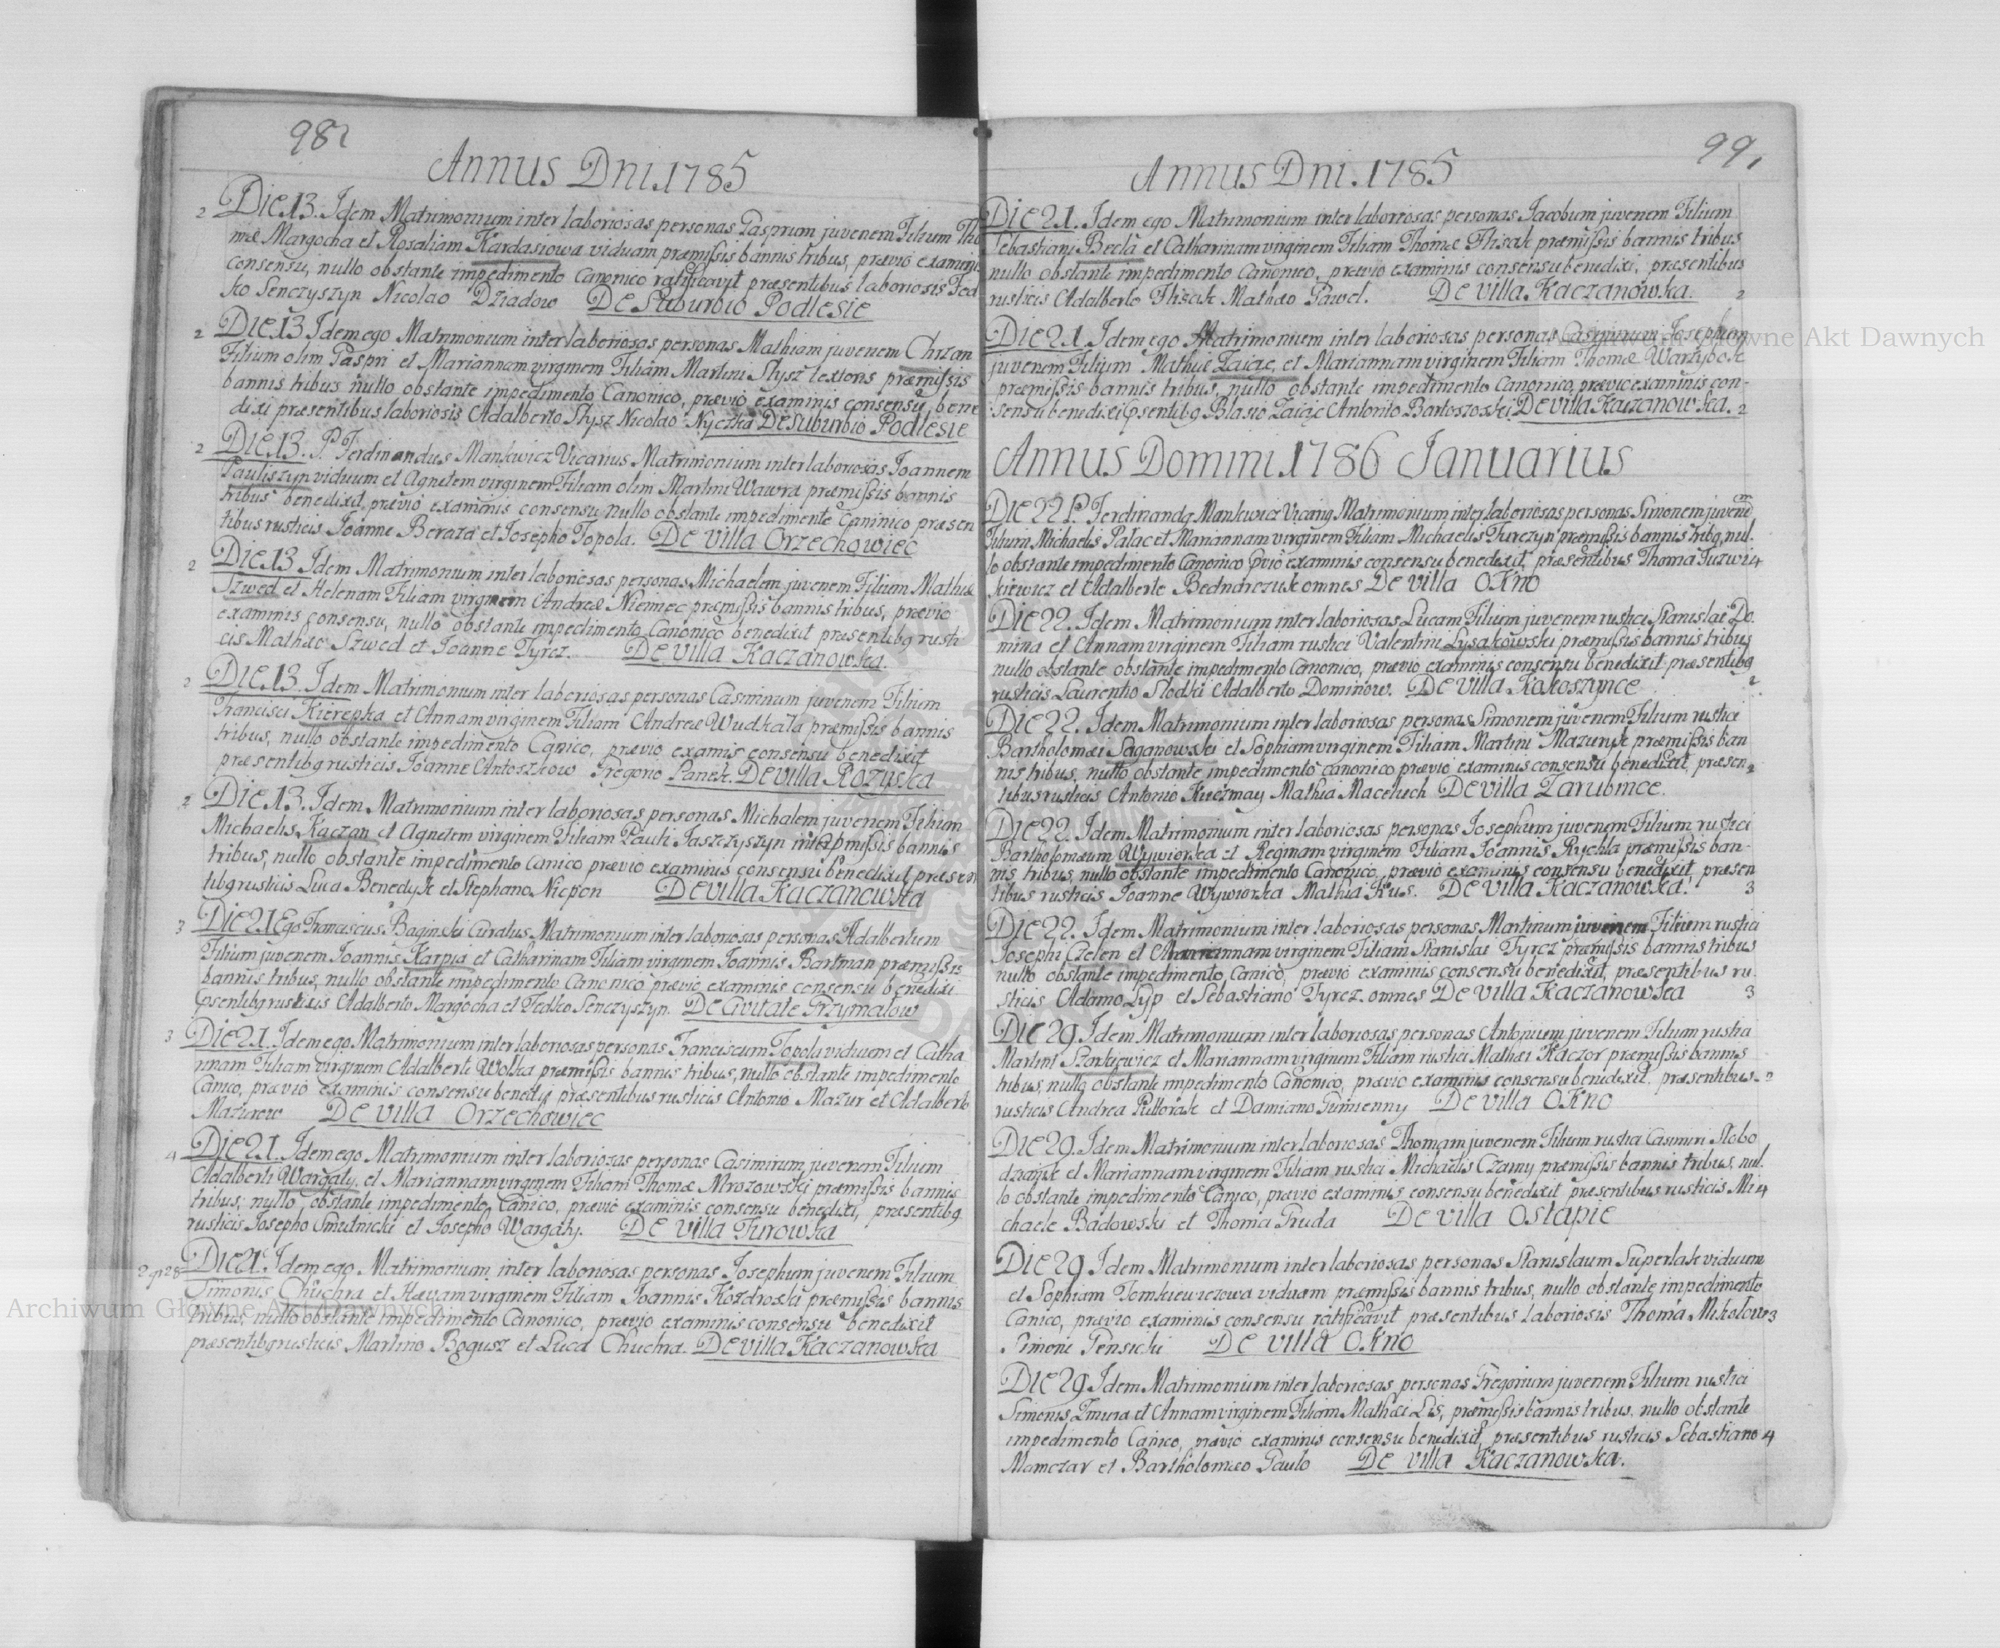 98
Annus Dni. 1785
2 Die 13. Idem Matrimonium inter laboriosas personas Gasprum juvenem Filium Tho
mæ Margocha et Rosaliam Kardasiowa viduam præmissis bannis tribus, prævio examinis
consensu, nullo obstante impedimento Canonico ratificavit præsentibus laboriosis Fed
ko Senczyszyn Nicolao Dziadow De Suburbio Podlesie
2 Die 13 Idem ego Matrimonium inter laboriosas personas Mathiam juvenem Chrzan
Filium olim Gaspri et Mariannam virginem Filiam Martini Stysz textoris præmissis
bannis tribus nullo obstante impedimento Canonico, prævio examinis consensu bene
dixi præsentibus laboriosis Adalberto Stysz Nicolao Nyczka De Suburbio Podlesie
2 Die 13. P. Ferdinandus Mankwicz Vicarius Matrimonium inter laboriosas Joannem
Pauliszyn viduum et Agnetem virginem Filiam olim Martini Wawra præmissis bannis
tribus benedixit, prævio examinis consensu nullo obstante impedimente Caninico præsen
tibus rusticis Joanne Beraza et Josepho Topola. De Villa Orzechowiec
2 Die 13 Idem Matrimonium inter laboriosas personas Michaelem juvenem Filium Mathiæ
Szwed et Helenam Filiam virginem Andreæ Niemiec præmissis bannis tribus, prævio
examinis consensu, nullo obstante impedimento Canonico benedixit præsentibq rusti
cis Mathæo Szwed et Joanne Tyrcz. De villa Kaczanowka.
2 Die 13. Idem Matrimonium inter laboriosas personas Casimirum juvenem Filium
Francisci Kierepka et Annam virginem Filiam Andreæ Wudkała præmissis bannis
tribus, nullo obstante impedimento Canico, prævio examis consensu benedixit
præsentibq rusticis Joanne Antoszkow Gregorio Panek. De villa Rozyska
2 Die 13. Idem Matrimonium inter laboriosas personas Michalem juvenem Filium
Michaelis Kaczan et Agnetem virginem Filiam Pauli Jaszczyszyn pmissis bannis
tribus, nullo obstante impedimento Canico prævio examinis consensu benedixit præsen
tibq rusticis Luca Benedyk et Stephano Niepon De villa Kaczanowka
3 Die 21 Ego Franciscus Baginski Curatus Matrimonium inter laboriosas personas Adalbertum
Filium juvenem Joannis Karpia et Catharinam Filiam virginem Joannis Bartman præmissis
bannis tribus, nullo obstante impedimento Canonico prævio examinis consensu benedixi
psentibq rusticis Adalberto Margocha et Fedko Senczyszyn. De Civitate Grzymałow
3 Die 21. Idem ego Matrimonium inter laboriosas personas Franciscum Topola viduum et Catha
rinam Filiam virginem Adalberti Wołka præmissis bannis tribus, nullo obstante impedimento
Canico, prævio examinis consensu benedixi præsentibus rusticis Antonio Mazur et Adalberto
Mazurow De villa Orzechowiec
4 Die 21. Idem ego Matrimonium inter laboriosas personas Casimirum juvenem Filium
Adalberti Wargaty. et Mariannam virginem Filiam Thomæ Mrozowski præmissis bannis
tribus, nullo obstante impedimento Canico, prævio examinis consensu benedixi, præsentibq
rusticis Josepho Smutnicki et Josepho Wargaty. De villa Turowka
Die 21. Idem ego Matrimonium inter laboriosas personas Josephum juvenem Filium
Simonis Chuchra et Hævam virginem Filiam Joannis Kozdroski præmissis bannis
tribus, nullo obstante impedimento Canonico, prævio examinis consensu benedixit
præsentibq rusticis Martino Bogusz et Luca Chuchra. De villa Kaczanowka
99
Annus Dni. 1785
Die 21. Idem ego Matrimonium inter laboriosas personas Jacobum juvenem Filium
Sebastiani Becla et Catharinam virginem Filiam Thomæ Flisak præmissis bannis tribus
nullo obstante impedimento Canonico, prævio examinis consensu benedixi, præsentibus
rusticis Adalberto Flisak Mathæo Pawel. De villa Kaczanowka. 2
Die 21. Idem ego Matrimonium inter laboriosas personas Casimirum Josephum
juvenem Filium Mathiæ Zaiąc, et Mariannam virginem Filiam Thomæ Warzybok
præmissis bannis tribus, nullo obstante impedimento Canonico, prævio examinis con-
sensu benedixi psentibq Blasio Zaiąc Antonio Bartoszoski De villa Kaczanowka. 2
Annus Domini 1786 Januarius
Die 22 P. Ferdinandq Mankwicz Vicariq Matrimonium inter laboriosas personas Simonem juvene
Filium Michaelis Palac et Mariannam virginem Filiam Michaelis Turczyn præmissis bannis tribq, nul.
lo obstante impedimento Canonico pvio examinis consensu benedixit, præsentibus Thoma Juzwi 4
kiewicz et Adalberte Bednarczuk omnes De villa Okno
Die 22. Idem Matrimonium inter laboriosas Lucam Filium juvenem rustici Stanislai Do
mina et Annam virginem Filiam rustici Valentini Lysakowski præmissis bannis tribus
nullo obstante obstante impedimento Canonico, prævio examinis consensu benedixit præsentibq
rusticis Laurentio Słodki Adalberto Dominow. De villa Kokoszynce 2
Die 22. Idem Matrimonium inter laboriosas personas Simonem juvenem Filium rustici
Bartholomæi Saganowski et Sophiam virginem Filiam Martini Mazuryk præmissis ban
nis tribus, nullo obstante impedimento canonico prævio examinis consensu benedixit, præsen 2
tibus rusticis Antonio Kuczmay Mathia Maceluch De villa Zarubince.
Die 22. Idem Matrimonium inter laboriosas personas Josephum juvenem Filium rustici
Bartholomæum Wywiorka et Reginam virginem Filiam Joannis Rychla præmissis ban-
nis tribus, nullo obstante impedimento Canonico, prævio examinis consensu benedixit præsen
tibus rusticis Joanne Wywiorka Mathia Kus. De villa Kaczanowka. 3
Die 22. Idem Matrimonium inter laboriosas personas Martinum juvenem Filium rustici
Josephi Czelen et Mariannam virginem Filiam Stanislai Tyrcz præmissis bannis tribus
nullo obstante impedimento Canico, prævio examinis consensu benedixit, præsentibus ru
sticis Adamo Lyp et Sebastiano Tyrcz. omnes De villa Kaczanowka 3
Die 29. Idem Matrimonium inter laboriosas personas Antonium juvenem Filium rustici
Martini Szarkiewicz et Mariannam virginem Filiam rustici Mathæi Kaczor præmissis bannis
tribus, nullo obstante impedimento Canonico, prævio examinis consensu benedixit. præsentibus
rusticis Andrea Pułtorak et Damiano Gumienny De villa Okno
Die 29. Idem Matrimonium inter laboriosas Thomam juvenem Filium rustici Casimiri Slobo
dzianik et Mariannam virginem Filiam rustici Michaelis Czarny præmissis bannis tribus, nul.
lo obstante impedimento Canico, prævio examinis consensu benedixit præsentibus rusticis Mi 4
chaele Badowski et Thoma Gruda De villa Ostapie
Die 29 Idem Matrimonium inter laboriosas personas Stanislaum Superlak viduum
et Sophiam Tomkiewiczowa viduam præmissis bannis tribus, nullo obstante impedimento
Canico, prævio examinis consensu ratificavit præsentibus laboriosis Thoma Mikolow 3
Simoni Pensicki De villa Okno
Die 29 Idem Matrimonium inter laboriosas personas Gregorium juvenem Filium rustici
Simonis Zmura et Annam virginem Filiam Mathæi Lis, præmissis bannis tribus, nullo obstante
impedimento Canico, prævio examinis consensu benedixit, præsentibus rusticis Sebastiano 4
Mamczar et Bartholomæo Gaulo De villa Kaczanowka.
Archiwum Główne Akt Dawnych
Archiwum Główne Akt Dawnych